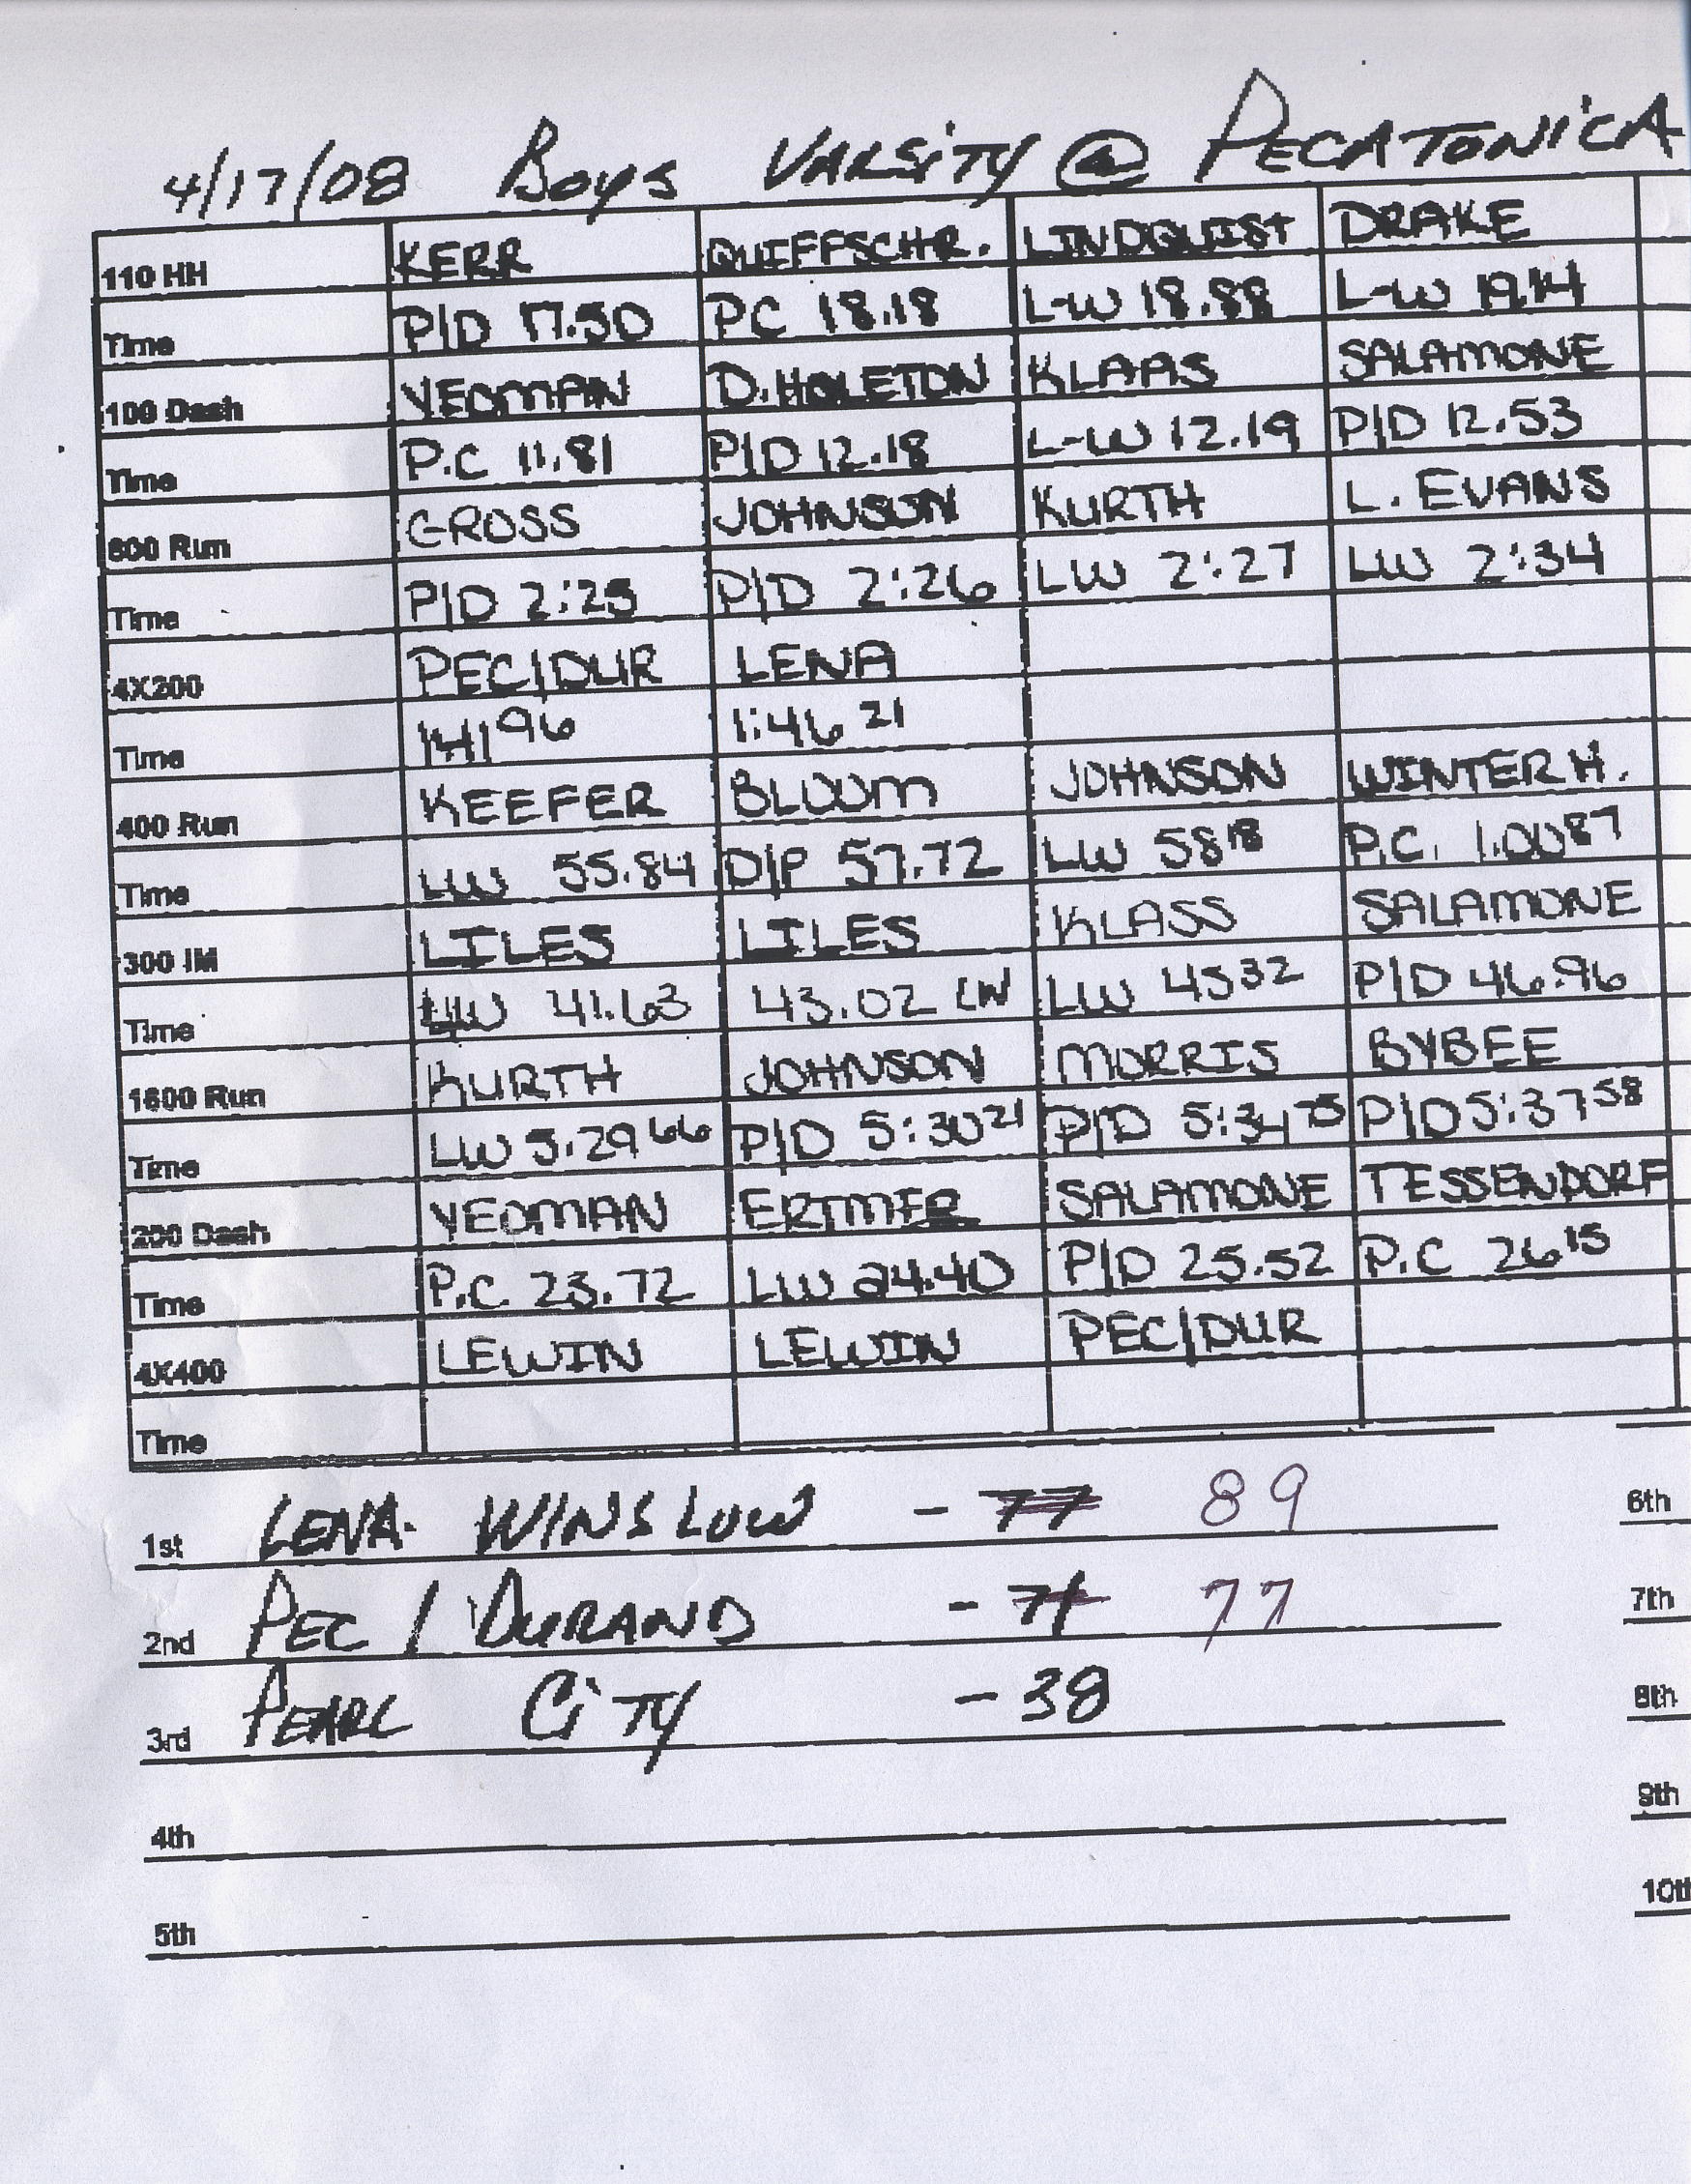 4/17/08 Boys VARSITY @ PECATONICA
110 HH KERR QUIFFSCHR. LINDQUIST DRAKE
Time P/D 17.50 PC 18.18 L-W 18.88 L-W 19.14
100 Dash YEOMAN D. HOLETON KLAAS SALAMONE
Time P.C 11.81 P/D 12.18 L-W 12.19 P/D 12.53
800 Run GROSS JOHNSON KURTH L. EVANS
Time P/D 2:25 P/D 2:26 LW 2:27 LW 2:34
4X200 PEC/DUR LENA
Time 1:41 96 1:46 21
400 Run KEEFER BLOOM JOHNSON WINTER H.
Time LW 55.84 D/P 57.72 LW 58 18 P.C. 1.00 87
300 IM LILES LILES KLASS SALAMONE
Time LW 41.63 43.02 LW LW 45 32 P/D 46.96
1600 Run KURTH JOHNSON MORRIS BYBEE
Time LW 5:29 66 P/D 5:30 21 P/D 5:34 75 P/D 5:37 58
200 Dash YEOMAN ERTMER SALAMONE TESSENDORF
Time P.C. 23.72 LW 24.40 P/D 25.52 P.C 26 15
4X400 LEWIN LEWIN PEC/DUR
Time
1st LENA- WINSLOW - 77 89 6th
2nd PEC / DURAND - 71 77 7th
3rd PEARL CITY - 38 8th
4th 9th
5th 10th